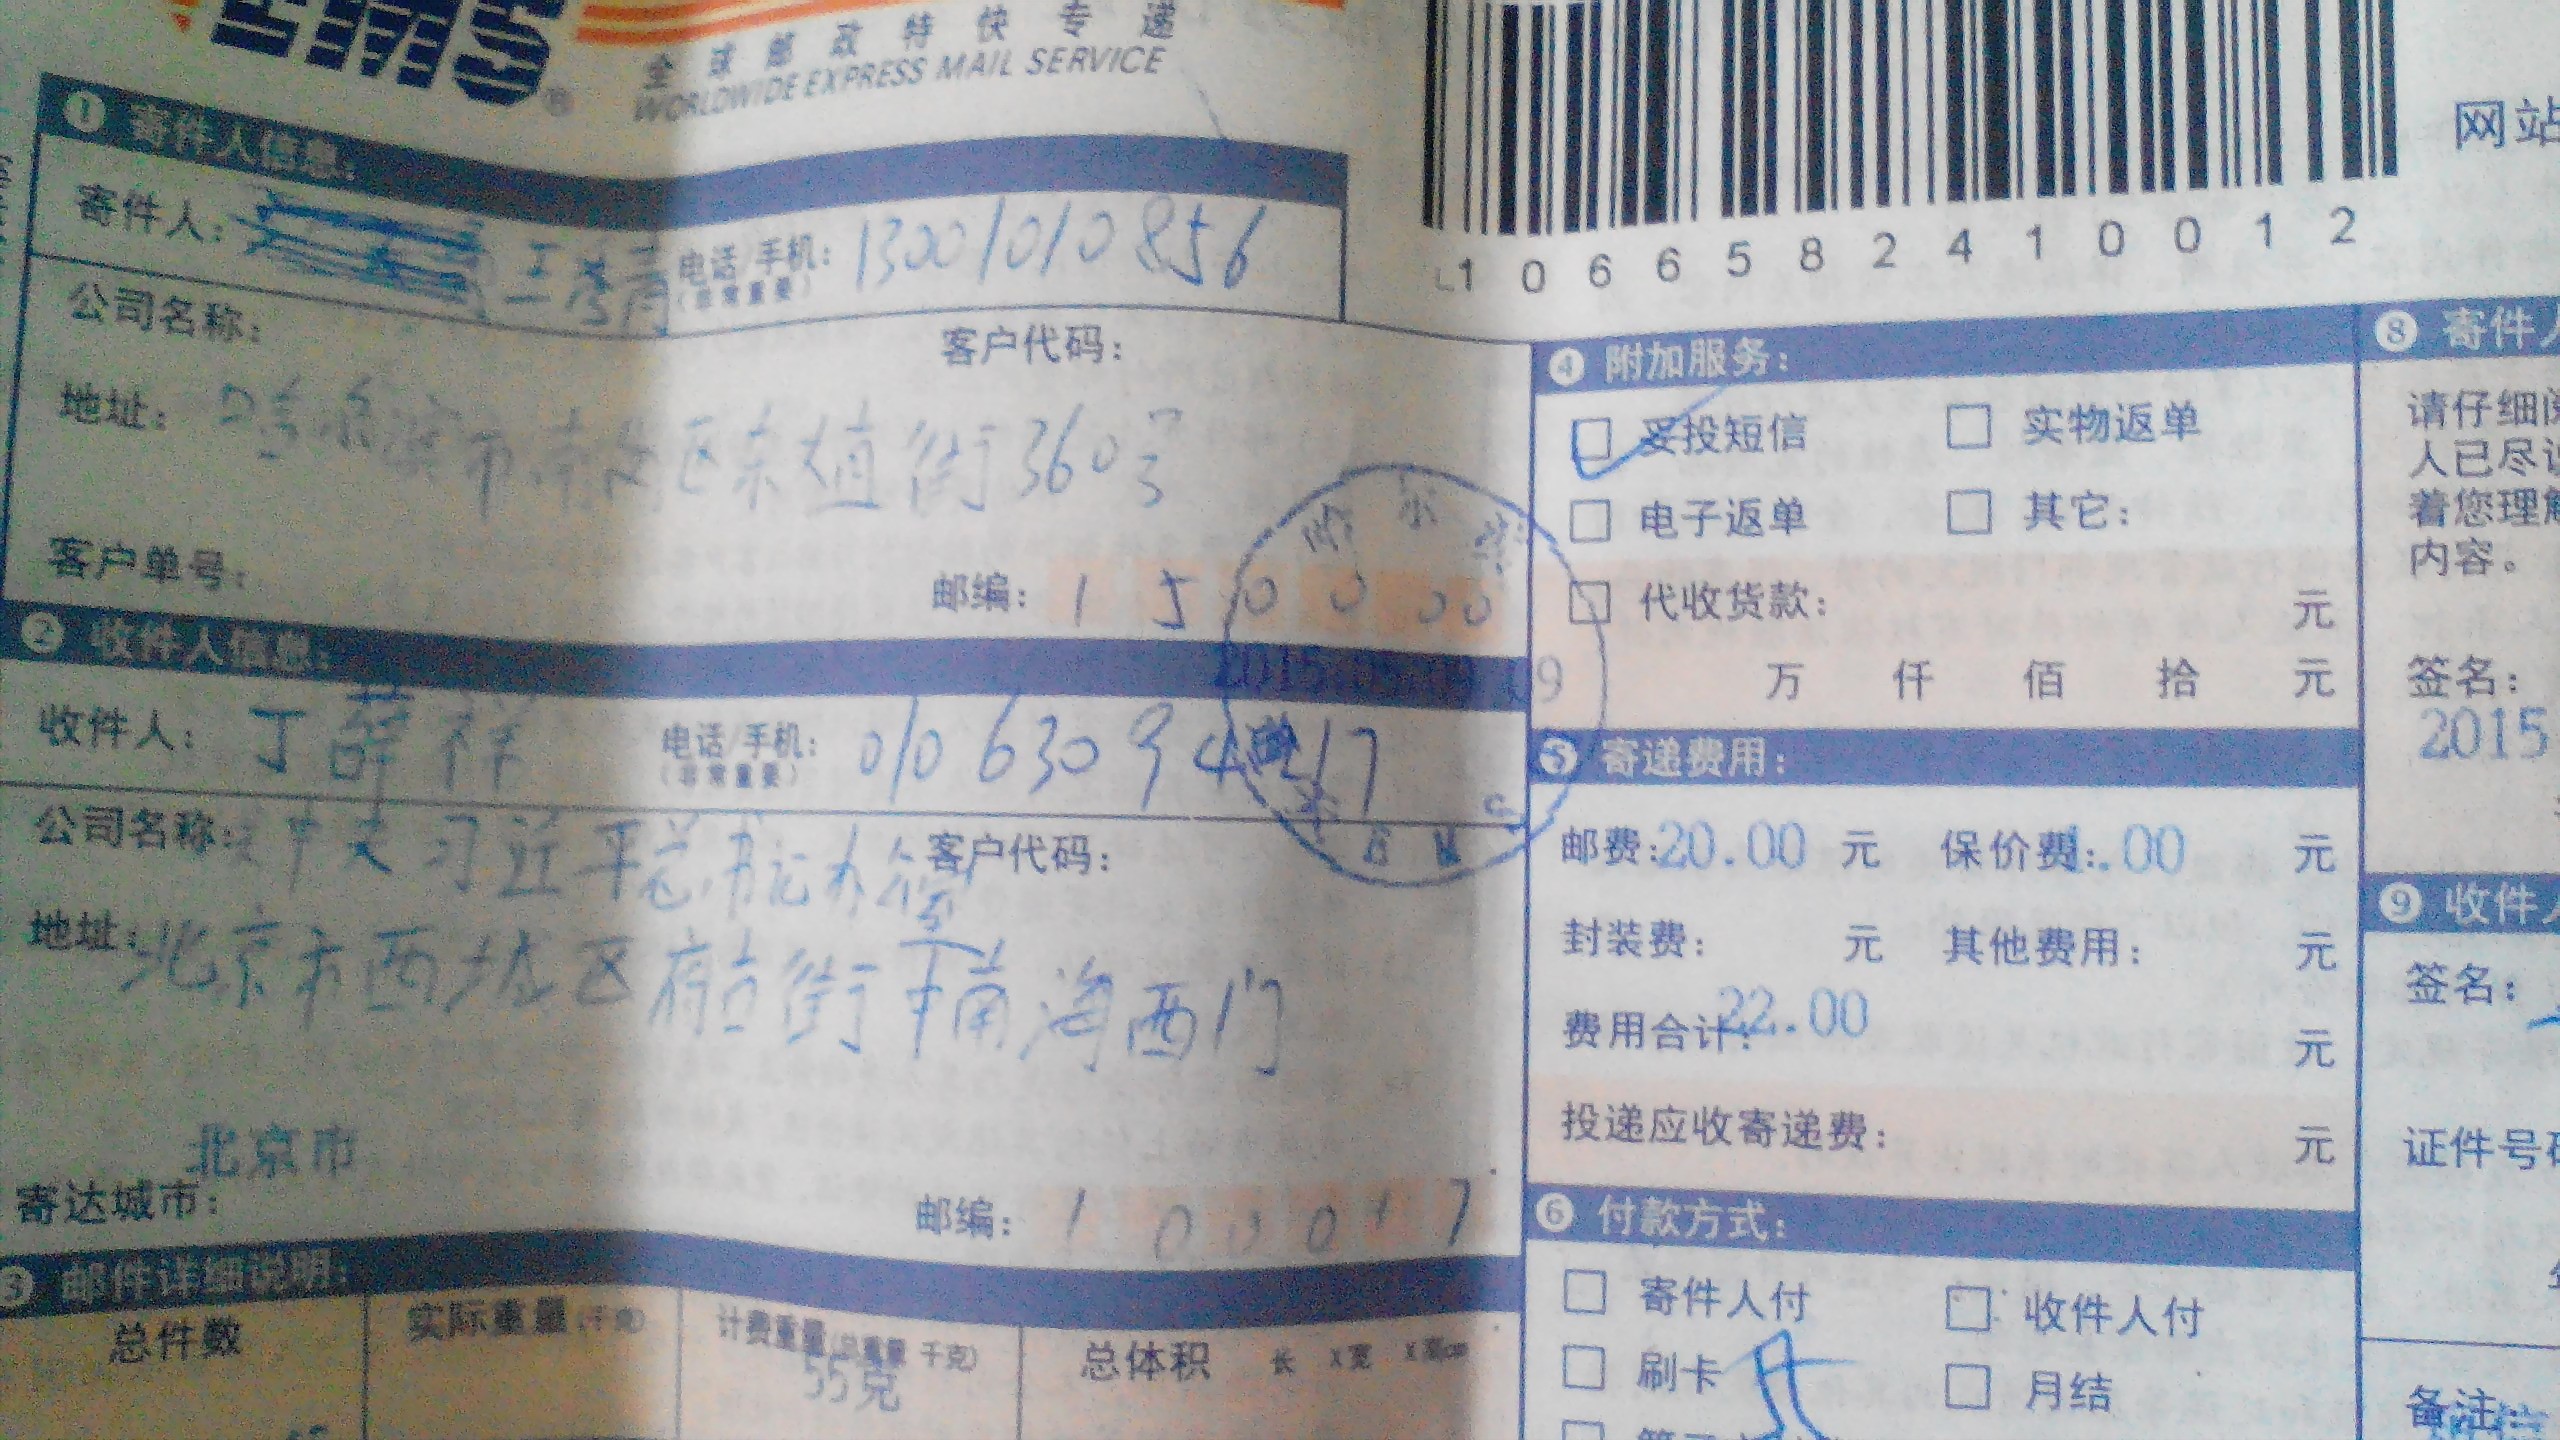 EMS
全球邮政特快专递
WORLDWIDE EXPRESS MAIL SERVICE
1 0 6 6 5 8 2 4 1 0 0 1 2
网站
❶ 寄件人信息:
寄件人:
电话/手机: 13001010856
(非常重要)
公司名称:
客户代码:
地址: 哈尔滨市南岗区东大直街360号
客户单号:
邮编: 150000
❷ 收件人信息:
收件人: 丁薛祥
电话/手机: 010 6309 17
(非常重要)
公司名称: 中央习近平总书记办公室
客户代码:
地址: 北京市西城区府右街中南海西门
北京市
寄达城市:
邮编: 100017
❸ 邮件详细说明:
总件数
实际重量(千克)
计费重量(总重量 千克)
55克
总体积 长 X宽 X高cm
❹ 附加服务:
妥投短信 实物返单
电子返单 其它:
代收货款: 元
万 仟 佰 拾 元
❺ 寄递费用:
邮费:20.00 元 保价费:1.00 元
封装费: 元 其他费用: 元
费用合计:22.00 元
投递应收寄递费: 元
❻ 付款方式:
寄件人付 收件人付
刷卡 月结
❽ 寄件人
请仔细阅
人已尽说
着您理解
内容。
签名:
2015
❾ 收件人
签名:
证件号码
备注: